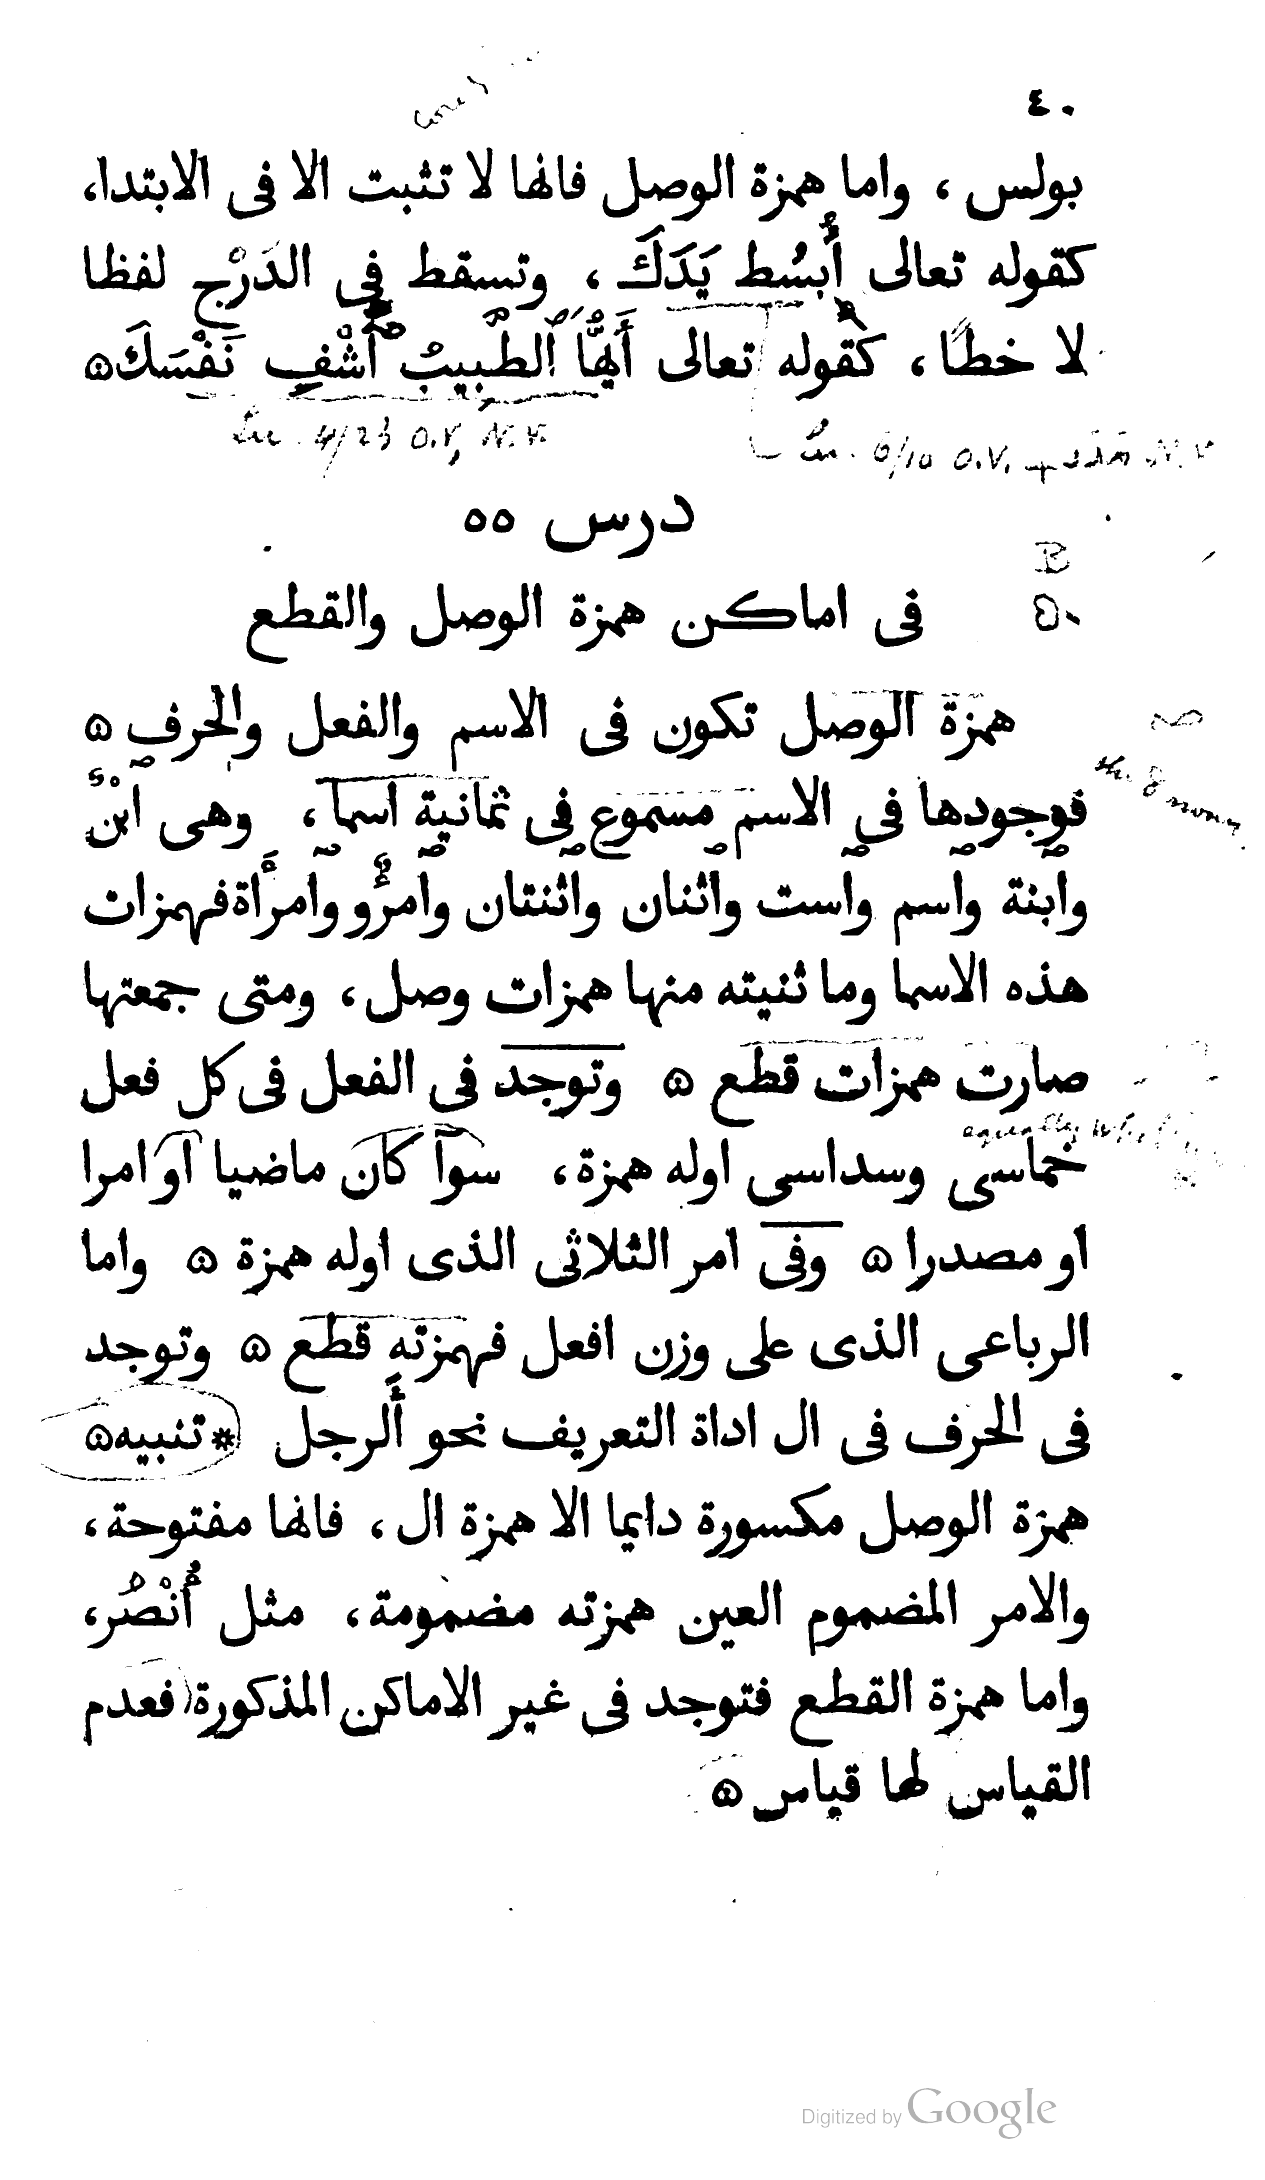 ٤٠
بولس ، واما همزة الوصل فانها لا تثبت الا فى الابتدا،
كقوله تعالى أُبسُط يَدَكَ ، وتسقط فى الدَرْج لفظا
لا خطا ، كقوله تعالى أَيهَّا ٱلطَّبِيبُ ٱشْفِ نَفْسَكَ ۞
Lu. 4/23 O.V, N.V.
Lu. 6/10 O.V. N.V
درس ٥٥
B
٥٠
فى اماكن همزة الوصل والقطع
همزة الوصل تكون فى الاسم والفعل والحرف ۞
the 8 nouns.
فوجودها فى الاسم مسموع فى ثمانية اسما ، وهى ابْنٌ
وابنة واسم واست واثنان واثنتان وامرُؤ وامرأَة فهمزات
هذه الاسما وما ثنيته منها همزات وصل ، ومتى جمعتها
صارت همزات قطع ۞ وتوجد فى الفعل فى كل فعل
equally
خماسى وسداسى اوله همزة ، سوآ كان ماضيا او امرا
او مصدرا ۞ وفى امر الثلاثى الذى اوله همزة ۞ واما
الرباعى الذى على وزن افعل فهمزته قطع ۞ وتوجد
فى الحرف فى ال اداة التعريف نحو أَلرجل * تنبيه ۞
همزة الوصل مكسورة دايما الا همزة ال ، فانها مفتوحة ،
والامر المضموم العين همزته مضمومة ، مثل أُنْصُر ،
واما همزة القطع فتوجد فى غير الاماكن المذكورة فعدم
القياس لها قياس ۞
Digitized by Google